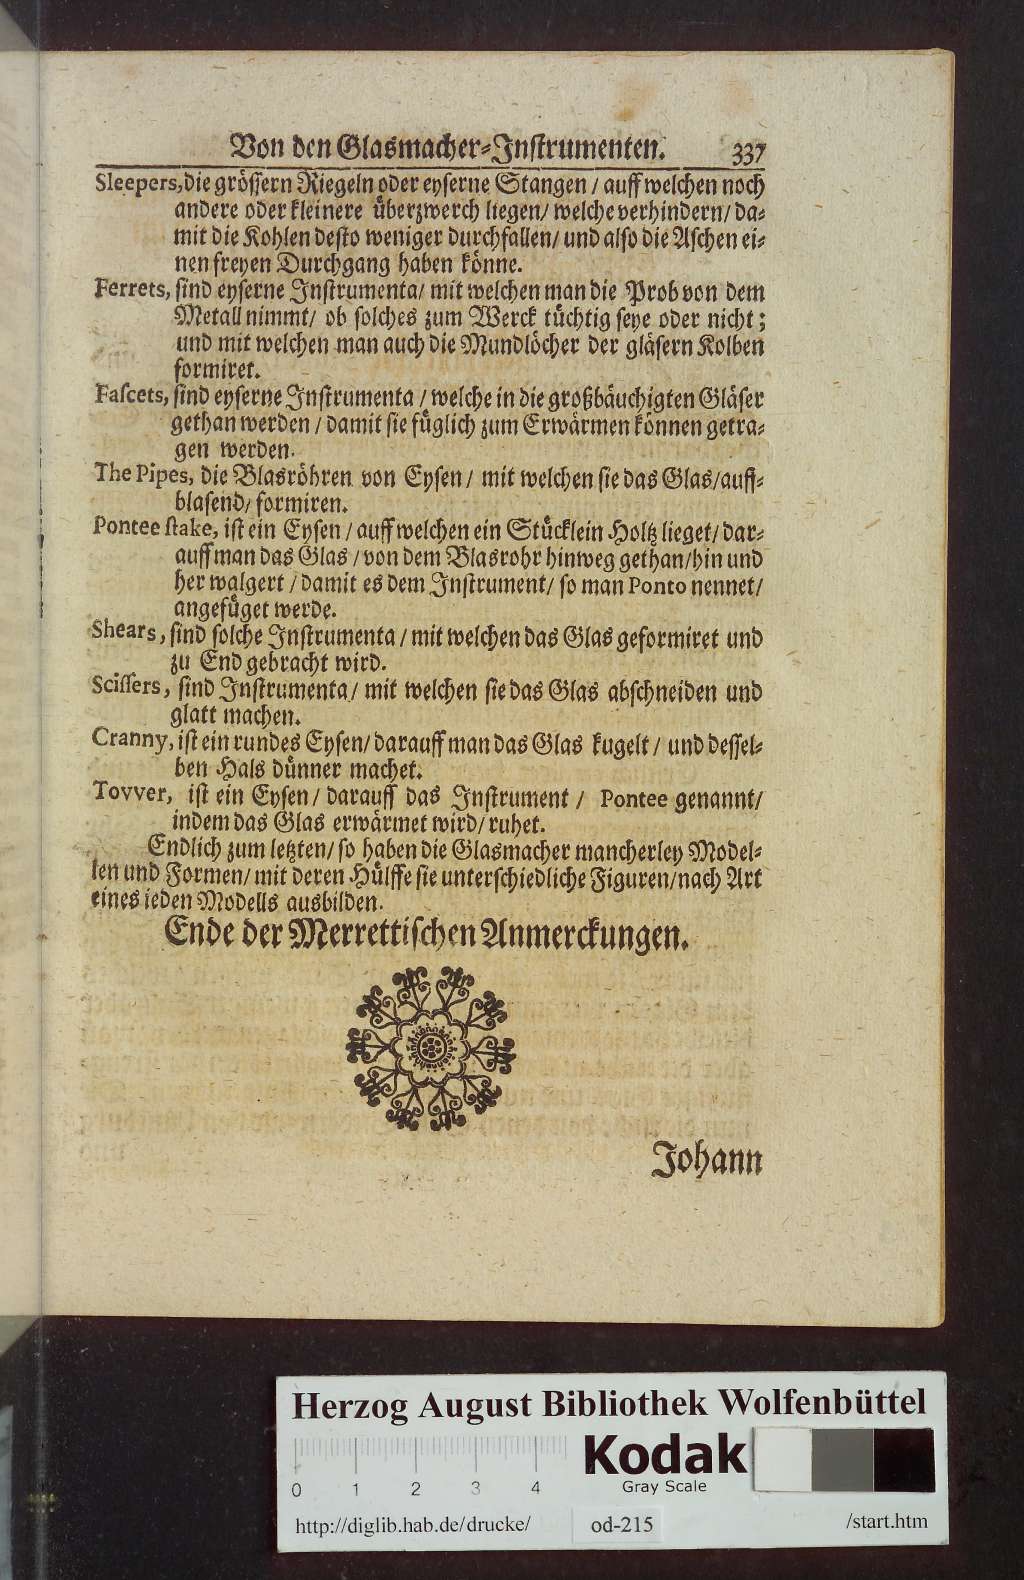 Von den Glasmacher-Instrumenten. 337
Sleepers, die grössern Riegeln oder eyserne Stangen / auff welchen noch
andere oder kleinere überzwerch liegen/ welche verhindern/ da-
mit die Kohlen desto weniger durchfallen/ und also die Aschen ei-
nen freyen Durchgang haben könne.
Ferrets, sind eyserne Instrumenta/ mit welchen man die Prob von dem
Metall nimmt/ ob solches zum Werck tüchtig seye oder nicht;
und mit welchen man auch die Mundlöcher der gläsern Kolben
formiret.
Fascets, sind eyserne Instrumenta / welche in die großbäuchigten Gläser
gethan werden / damit sie füglich zum Erwärmen können getra-
gen werden.
The Pipes, die Blasröhren von Eysen / mit welchen sie das Glas/auff-
blasend/ formiren.
Pontee stake, ist ein Eysen / auff welchen ein Stücklein Holtz lieget/ dar-
auff man das Glas / von dem Blasrohr hinweg gethan/hin und
her walgert / damit es dem Instrument/ so man Ponto nennet/
angefüget werde.
Shears, sind solche Instrumenta / mit welchen das Glas geformiret und
zu End gebracht wird.
Scissers, sind Instrumenta/ mit welchen sie das Glas abschneiden und
glatt machen.
Cranny, ist ein rundes Eysen/ darauff man das Glas kugelt / und dessel-
ben Hals dünner machet.
Tovver, ist ein Eysen / darauff das Instrument / Pontee genannt/
indem das Glas erwärmet wird/ ruhet.
Endlich zum letzten/ so haben die Glasmacher mancherley Model-
len und Formen/ mit deren Hülffe sie unterschiedliche Figuren/nach Art
eines ieden Modells ausbilden.
Ende der Merrettischen Anmerckungen.
Johann
Herzog August Bibliothek Wolfenbüttel
0 1 2 3 4
Kodak
Gray Scale
http://diglib.hab.de/drucke/ od-215 /start.htm